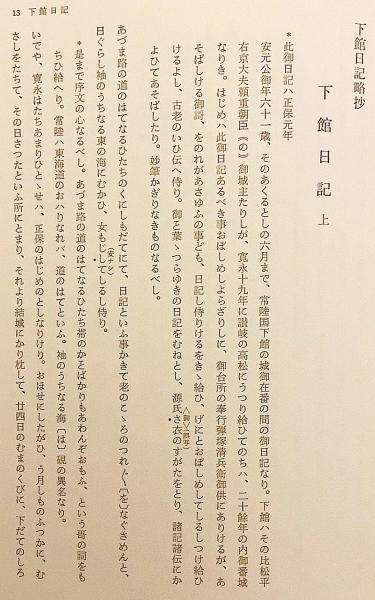 13 下館日記
下館日記略抄
下館日記 上
*此御日記ハ正保元年
安元公御年六十一歳、そのあくるとしの六月まで、常陸国下館の城御在番の間の御日記なり。下館ハその比松平
右京大夫頼重朝臣《の》御城主たりしが、寛永十九年に讃岐の高松にうつり給ひてのちハ、二十餘年の内御番城
なりき。はじめハ此御日記あるべき事おぼしめしよらざりしに、御台所の奉行弾塚清兵衛御供にありけるが、あ
そばしける御詞、をのれがあさゆふの事ども、日記し侍りけるをきゝ給ひ、げにとおぼしめしてしるしつけ給ひ
けるよし、古老のいひ伝へ侍り。御と葉ゝつらゆきの日記をむねとし、源氏さ衣のすがたをとり、諸記諸伝にか
〈御〉〈誤写〉
よひてあそばしたり。妙筆かぎりなきものなるべし。
あづま路の道のはてなるひたちのくにしもだてにて、日記といふ事かきて老のこゝろのつれ〴〵〔を〕なぐさめんと、
日ぐらし袖のうちなる東の海にむかひ、女もじしてしるし侍り。
*是まで序文の心なるべし。あづま路の道のはてなるひたち帯のかどばかりもあわんぞおもふ、という哥の詞をも
ちひ給へり。常陸ハ東海道のおハりなれバ、道のはてといふ。袖のうちなる海〔は〕硯の異名なり。
いでや、寛永はたちあまりひとゝせハ、正保のはじめのとしなりけり。おほせにしたがひ、う月しものふつかに、む
さしをたちて、その日さつたといふ所にとまり、それより結城にかり枕して、廿四日のむまのくびに、下だてのしろ